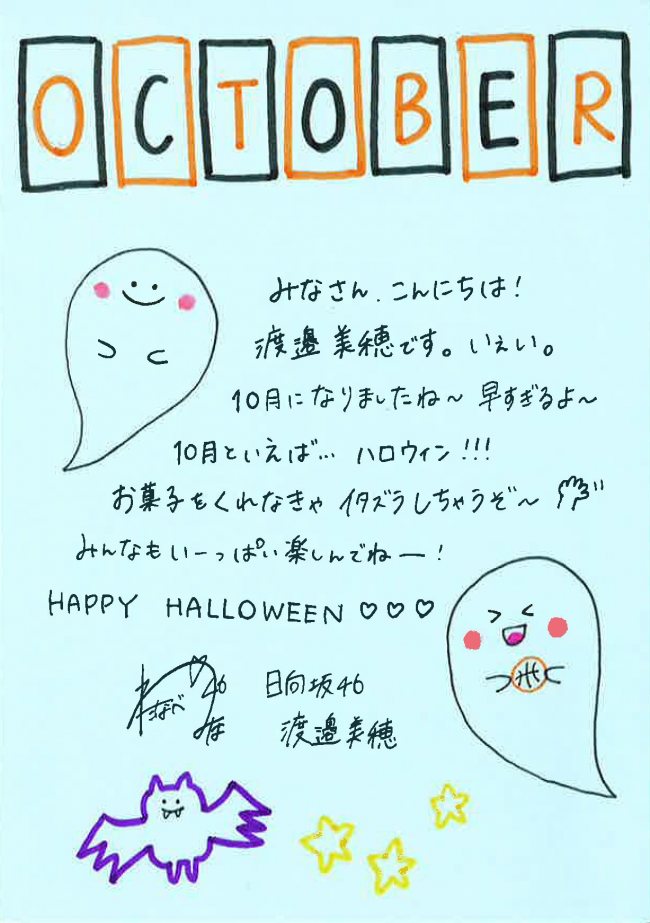 OCTOBER
みなさん、こんにちは!
渡邉美穂です。いぇい。
10月になりましたね〜 早すぎるよ〜
10月といえば… ハロウィン!!!
お菓子をくれなきゃ イタズラしちゃうぞ〜
みんなもいーっぱい楽しんでねー!
HAPPY HALLOWEEN ♡♡♡
わたなべ みほ 46
日向坂46
渡邉美穂